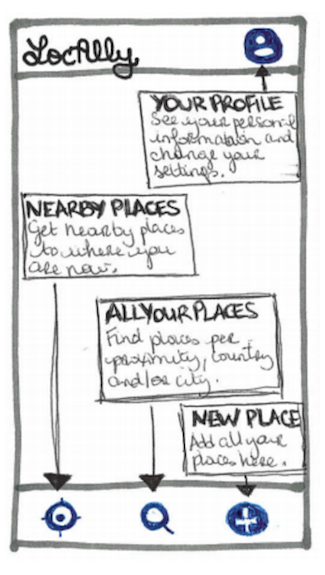 LocAlly
YOUR PROFILE
See your personal
information and
change your
settings.
NEARBY PLACES
Get nearby places
to where you
are now.
ALL YOUR PLACES
Find places per
proximity, country
and/or city.
NEW PLACE
Add all your
places here.